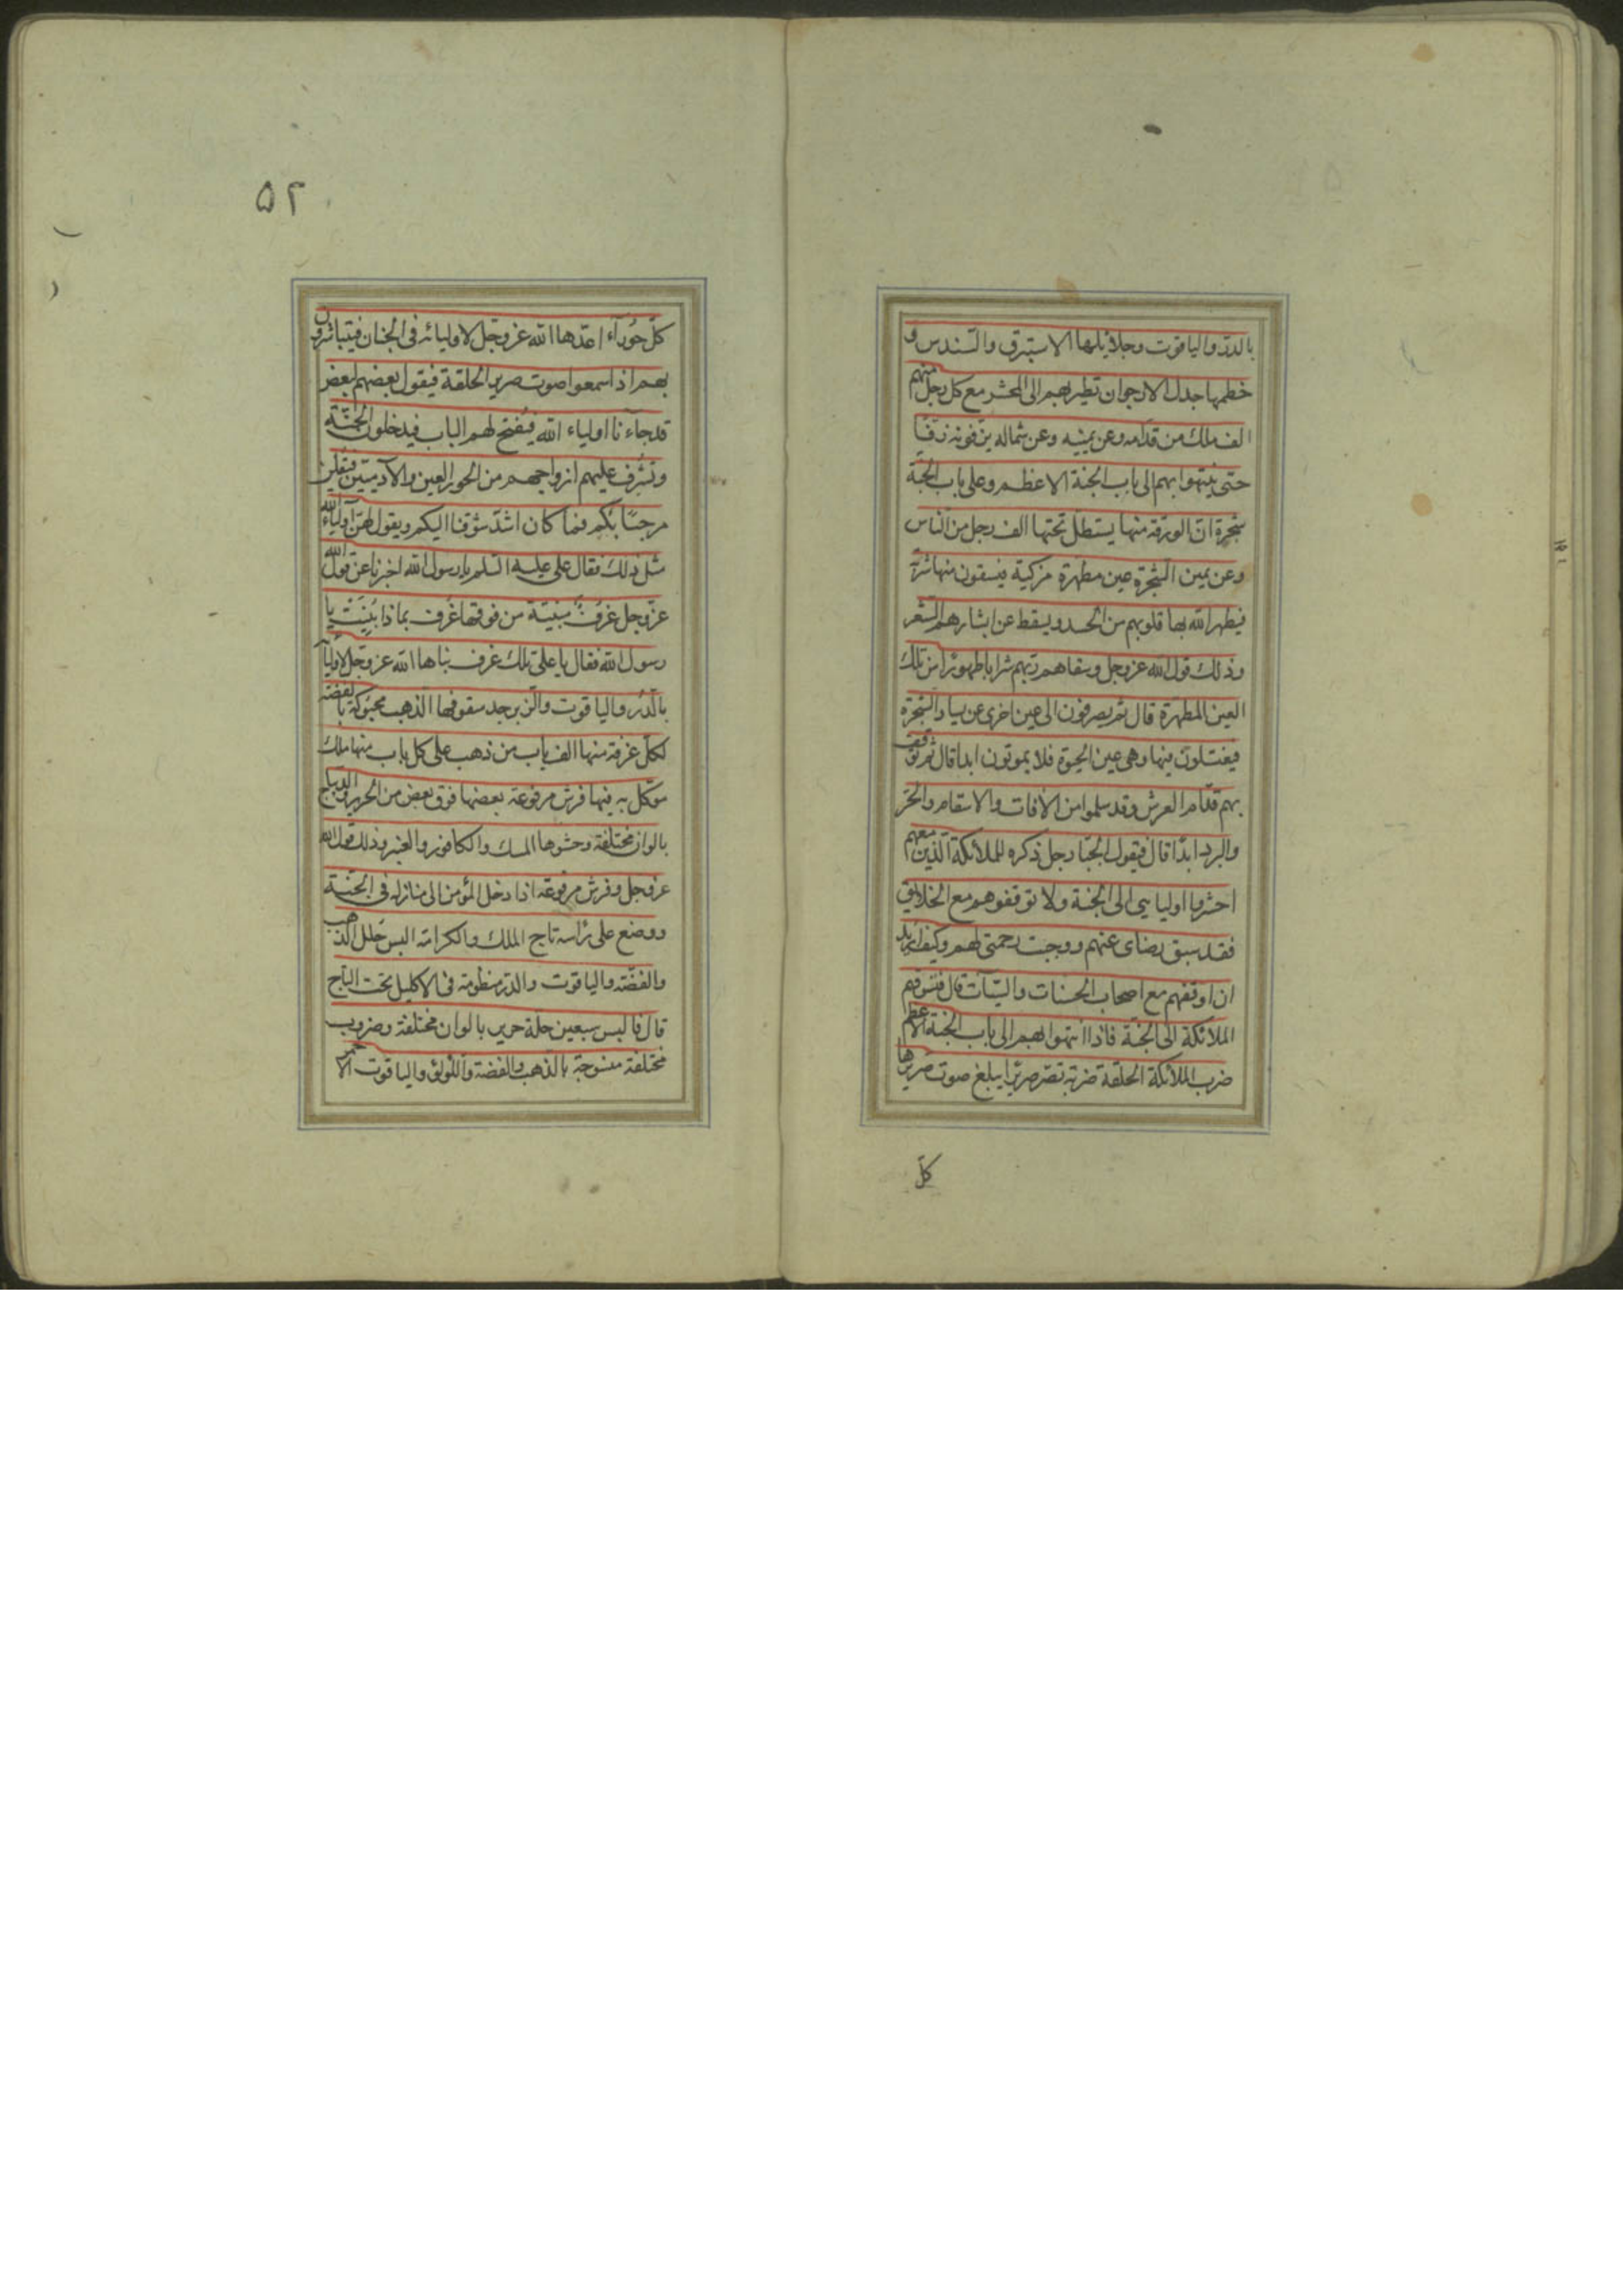 بالدر والياقوت وجلائلها الاستبرق والسندس و
خطمها جدل الارجوان تطير بهم الى المحشر مع كل رجل منهم
الف ملك من قدامه وعن يمينه وعن شماله يزفونه زفّا
حتى ينتهوا بهم الى باب الجنة الاعظم وعلى باب الجنة
شجرة انّ الورقة منها يستظلّ تحتها الف رجل من الناس
وعن يمين الشجرة عين مطهرة مزكية فيسقون منها شربة
فيطهر الله بها قلوبهم من الحسد ويسقط عن ابشارهم الشعر
وذلك قول الله عز وجل وسقاهم ربهم شرابا طهورًا من تلك
العين المطهرة قال ثم يصرفون الى عين اخرى عن يسار الشجرة
فيغتسلون فيها وهى عين الحيوة فلا يموتون ابدا قال ثم توقف
بهم قدّام العرش وقد سلموا من الافات والاسقام والحرّ
والبرد ابدًا قال فيقول الجبّار جل ذكره للملائكة الذين معهم
احشروا اوليايى الى الجنة ولا توقفوهم مع الخلايق
فقد سبق رضاى عنهم ووجبت رحمتى لهم وكيف اريد
ان اوقفهم مع اصحاب الحسنات والسيّآت قال فتسوقهم
الملائكة الى الجنّة فاذا انتهوا بهم الى باب الجنة الاعظم
ضرب الملائكة الحلقة ضربة تصرّ صريرًا يبلغ صوت صريرها
كلّ
۵۲
كلّ حوراء اعدّها الله عز وجل لاوليائه فى الجنان فيتباشرون
بهم اذا سمعوا صوت صرير الحلقة فيقول بعضهم لبعض
قد جاءنا اولياء الله فيفتح لهم الباب فيدخلون الجنّة
وتشرف عليهم ازواجهم من الحور العين والآدميّين فيقلن
مرحبًا بكم فما كان اشدّ شوقنا اليكم ويقول لهنّ اولياء الله
مثل ذلك فقال على عليه السلم يا رسول الله اخبرنا عن قول الله
عز وجل غُرَفٌ مبنيّة من فوقها غُرف بماذا بُنيَتْ يا
رسول الله فقال يا على تلك غرف بناها الله عز وجل لاوليائه
بالدرّ والياقوت والزبرجد سقوفها الذهب محبوكة بالفضة
لكلّ غرفة منها الف باب من ذهب على كل باب منها ملك
موكّل به فيها فرش مرفوعة بعضها فوق بعض من الحرير والديباج
بالوان مختلفة وحشوها المسك والكافور والعنبر وذلك قول الله
عز وجل وفرش مرفوعة اذا دخل المؤمن الى منازله فى الجنّة
ووضع على رأسه تاج الملك والكرامة البس حلل الذهب
والفضّة والياقوت والدر منظومة فى الاكليل تحت التاج
قال فالبس سبعين حلّة حرير بالوان مختلفة وضروب
مختلفة منسوجة بالذهب والفضة واللؤلؤ والياقوت الاحمر